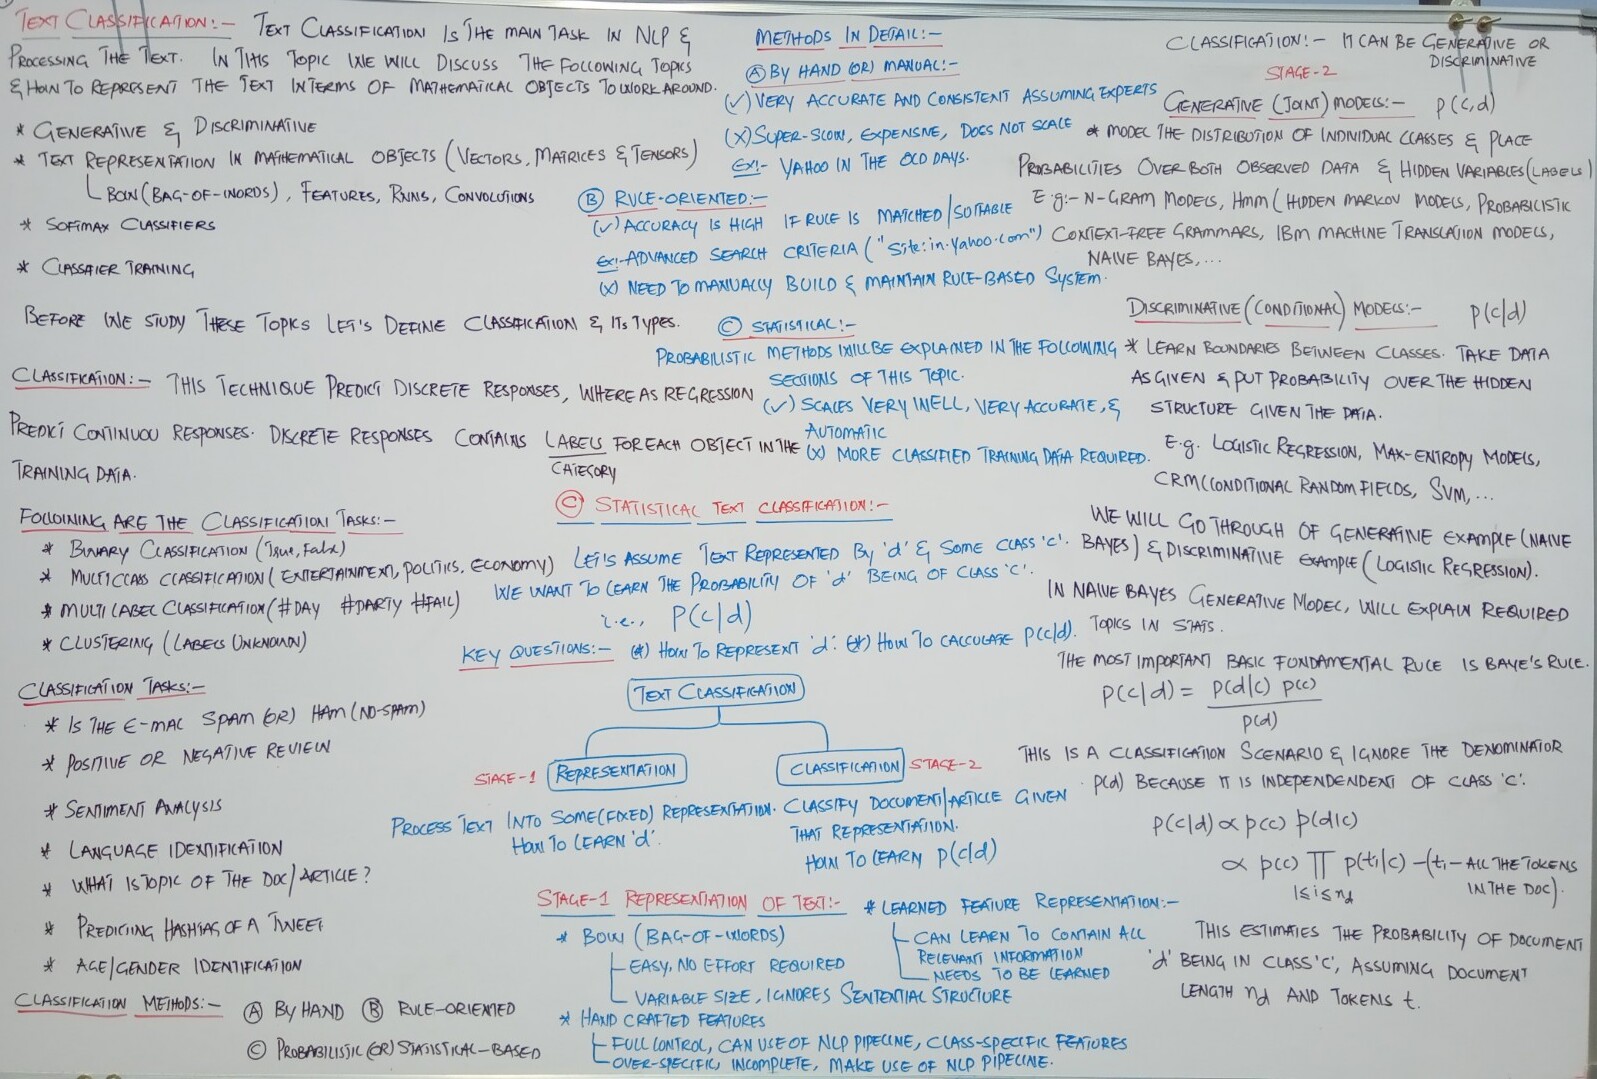 TEXT CLASSIFICATION:- TEXT CLASSIFICATION IS THE MAIN TASK IN NLP &
PROCESSING THE TEXT. IN THIS TOPIC WE WILL DISCUSS THE FOLLOWING TOPICS
& HOW TO REPRESENT THE TEXT IN TERMS OF MATHEMATICAL OBJECTS TO WORK AROUND.
* GENERATIVE & DISCRIMINATIVE
* TEXT REPRESENTATION IN MATHEMATICAL OBJECTS (VECTORS, MATRICES & TENSORS)
BOW (BAG-OF-WORDS), FEATURES, RNNS, CONVOLUTIONS
* SOFTMAX CLASSIFIERS
* CLASSFIER TRAINING
BEFORE WE STUDY THESE TOPICS LET'S DEFINE CLASSIFICATION & ITS TYPES.
CLASSIFICATION:- THIS TECHNIQUE PREDICT DISCRETE RESPONSES, WHERE AS REGRESSION
PREDICT CONTINUOU RESPONSES. DISCRETE RESPONSES CONTAINS LABELS FOR EACH OBJECT IN THE
CATEGORY
TRAINING DATA.
FOLLOWING ARE THE CLASSIFICATION TASKS:-
* BINARY CLASSIFICATION (True, False)
* MULTICLASS CLASSIFICATION (ENTERTAINMENT, POLITICS, ECONOMY)
* MULTI LABEL CLASSIFICATION (#DAY #PARTY #FAIL)
* CLUSTERING (LABELS UNKNOWN)
CLASSIFICATION TASKS:-
* IS THE E-MAIL SPAM (OR) HAM (NO-SPAM)
* POSITIVE OR NEGATIVE REVIEW
* SENTIMENT ANALYSIS
* LANGUAGE IDENTIFICATION
* WHAT IS TOPIC OF THE DOC/ARTICLE?
* PREDICTING HASHTAG OF A TWEET
* AGE/GENDER IDENTIFICATION
CLASSIFICATION METHODS:- Ⓐ BY HAND Ⓑ RULE-ORIENTED
Ⓒ PROBABILISTIC (OR) STATISTICAL-BASED
METHODS IN DETAIL:-
Ⓐ BY HAND (OR) MANUAL:-
(✓) VERY ACCURATE AND CONSISTENT ASSUMING EXPERTS
(X) SUPER-SLOW, EXPENSIVE, DOES NOT SCALE
Ex:- YAHOO IN THE OLD DAYS.
Ⓑ RULE-ORIENTED:-
(✓) ACCURACY IS HIGH IF RULE IS MATCHED/SUITABLE
Ex:- ADVANCED SEARCH CRITERIA ("Site:in.yahoo.com")
(X) NEED TO MANUALLY BUILD & MAINTAIN RULE-BASED SYSTEM.
Ⓒ STATISTICAL:-
PROBABILISTIC METHODS WILL BE EXPLAINED IN THE FOLLOWING
SECTIONS OF THIS TOPIC.
(✓) SCALES VERY WELL, VERY ACCURATE, &
AUTOMATIC
(X) MORE CLASSIFIED TRAINING DATA REQUIRED.
Ⓒ STATISTICAL TEXT CLASSIFICATION:-
LET'S ASSUME TEXT REPRESENTED BY 'd' & SOME CLASS 'C'.
WE WANT TO LEARN THE PROBABILITY OF 'd' BEING OF CLASS 'C'.
i.e., P(c|d)
KEY QUESTIONS:- (*) HOW TO REPRESENT 'd'. (*) HOW TO CALCULATE P(c|d).
TEXT CLASSIFICATION
STAGE-1 REPRESENTATION CLASSIFICATION STAGE-2
PROCESS TEXT INTO SOME (FIXED) REPRESENTATION.
HOW TO LEARN 'd'.
CLASSIFY DOCUMENT/ARTICLE GIVEN
THAT REPRESENTATION.
HOW TO LEARN P(c|d)
STAGE-1 REPRESENTATION OF TEXT:-
* BOW (BAG-OF-WORDS)
EASY, NO EFFORT REQUIRED
VARIABLE SIZE, IGNORES SENTENTIAL STRUCTURE
* HAND CRAFTED FEATURES
FULL CONTROL, CAN USE OF NLP PIPELINE, CLASS-SPECIFIC FEATURES
OVER-SPECIFIC, INCOMPLETE, MAKE USE OF NLP PIPELINE.
* LEARNED FEATURE REPRESENTATION:-
CAN LEARN TO CONTAIN ALL
RELEVANT INFORMATION
NEEDS TO BE LEARNED
CLASSIFICATION:- IT CAN BE GENERATIVE OR
DISCRIMINATIVE
STAGE-2
GENERATIVE (JOINT) MODELS:- P(c,d)
* MODEL THE DISTRIBUTION OF INDIVIDUAL CLASSES & PLACE
PROBABILITIES OVER BOTH OBSERVED DATA & HIDDEN VARIABLES (LABELS)
E.g:- N-GRAM MODELS, HMM (HIDDEN MARKOV MODELS, PROBABILISTIC
CONTEXT-FREE GRAMMARS, IBM MACHINE TRANSLATION MODELS,
NAIVE BAYES, ...
DISCRIMINATIVE (CONDITIONAL) MODELS:- P(c|d)
* LEARN BOUNDARIES BETWEEN CLASSES. TAKE DATA
AS GIVEN & PUT PROBABILITY OVER THE HIDDEN
STRUCTURE GIVEN THE DATA.
E.g. LOGISTIC REGRESSION, MAX-ENTROPY MODELS,
CRM (CONDITIONAL RANDOM FIELDS, SVM, ...
WE WILL GO THROUGH OF GENERATIVE EXAMPLE (NAIVE
BAYES) & DISCRIMINATIVE EXAMPLE (LOGISTIC REGRESSION).
IN NAIVE BAYES GENERATIVE MODEL, WILL EXPLAIN REQUIRED
TOPICS IN STATS.
THE MOST IMPORTANT BASIC FUNDAMENTAL RULE IS BAYE'S RULE.
P(c|d) = P(d|c) P(c) / P(d)
THIS IS A CLASSIFICATION SCENARIO & IGNORE THE DENOMINATOR
P(d) BECAUSE IT IS INDEPENDENDENT OF CLASS 'C'.
P(c|d) ∝ P(c) P(d|c)
∝ P(c) ∏ P(ti|c) - (ti - ALL THE TOKENS
1≤i≤nd IN THE DOC).
THIS ESTIMATES THE PROBABILITY OF DOCUMENT
'd' BEING IN CLASS 'C', ASSUMING DOCUMENT
LENGTH nd AND TOKENS t.